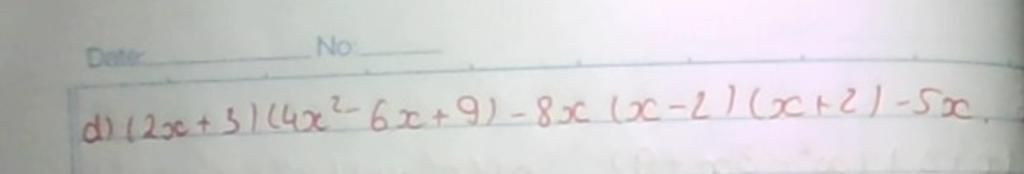 Date: No:
d) (2x+3)(4x²-6x+9)-8x(x-2)(x+2)-5x.